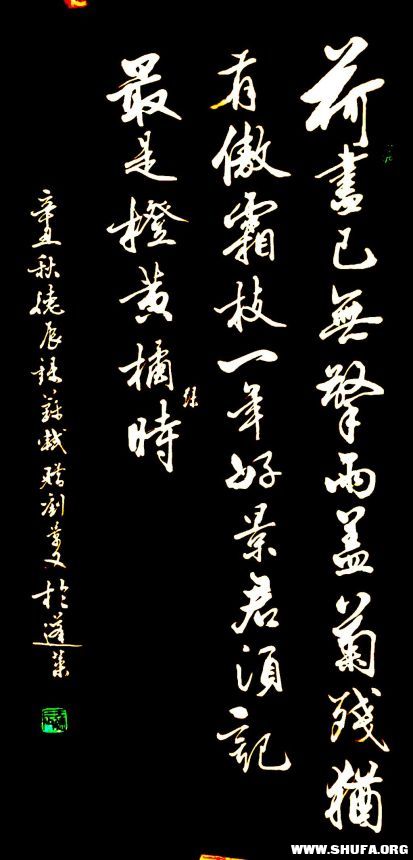 荷盡已無擎雨蓋菊殘猶
有傲霜枝一年好景君須記
最是橙黄橘時
綠
辛丑秋辰録蘇軾贈劉景文於蓬萊
WWW.SHUFA.ORG